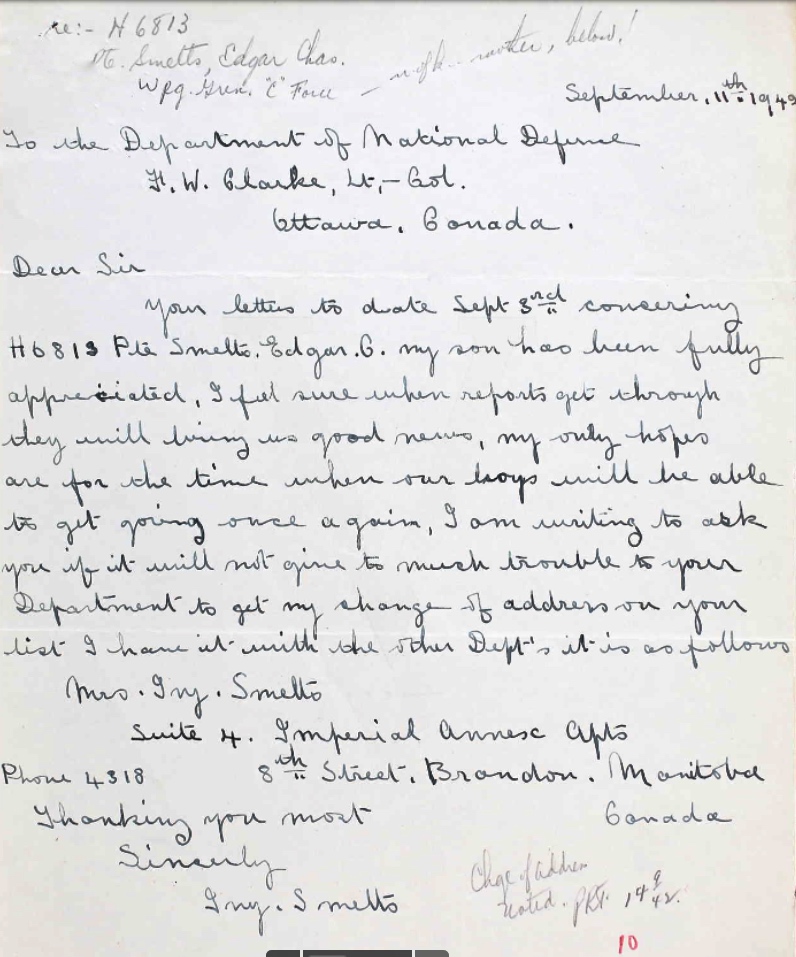 re:- H 6813
Pte. Smelts, Edgar Chas.
Wpg. Gren. "C" Force — mother, below!
September, 11th 1942
To the Department of National Defense
H. W. Clarke, Lt,-Col.
Ottawa, Canada.
Dear Sir
Your letter to date Sept 3rd conserring
H6813 Pte Smelts. Edgar. C. my son has been fully
appreciated, I feel sure when reports get through
they will bring us good news, my only hopes
are for the time when our boys will be able
to get going once again, I am writing to ask
you if it will not give to much trouble to your
Department to get my change of address on your
list I have it with the other Dept's it is as follows
Mrs. Ivy. Smelts
Suite 4. Imperial Annex Apts
Phone 4318 8th Street. Brandon. Manitoba
Thanking you most Canada
Sincerly
Ivy. Smelts
Chge of address
noted. 14 9 42.
10